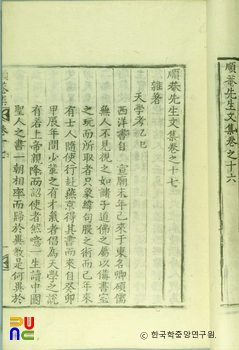 順菴先生文集卷之十六
順菴先生文集卷之十七
雜著
天學考 乙巳
西洋書自 宣廟末年已來于東名卿碩儒
無人不見視之如諸子道佛之屬以備書室
之玩而所取者只象緯句股之術而已年來
有士人隨使行赴燕京得其書而來自癸卯
甲辰年間少輩之有才氣者倡爲天學之說
有若上帝親降而詔使者然噫一生讀中國
聖人之書一朝相率而歸於異教是何異於
PUNC
© 한국학중앙연구원